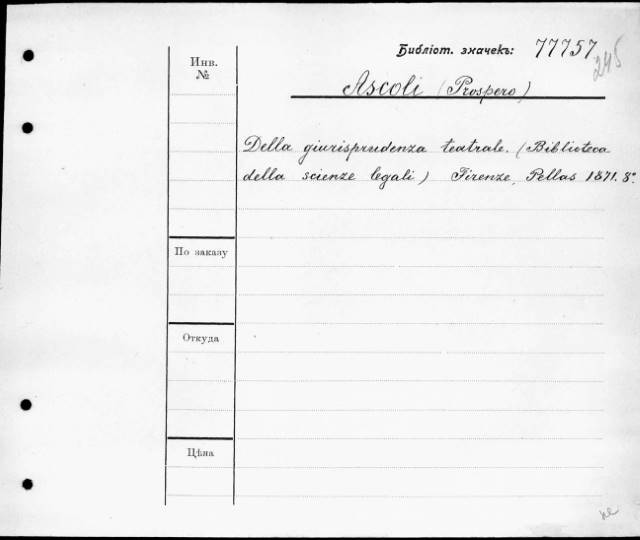 Библіот. значекъ: 77757
245
Инв.
№
Ascoli (Prospero)
Della giurisprudenza teatrale. (Biblioteca
della scienze legali.) Firenze, Pellas 1871. 8°.
По заказу
Откуда
Цѣна